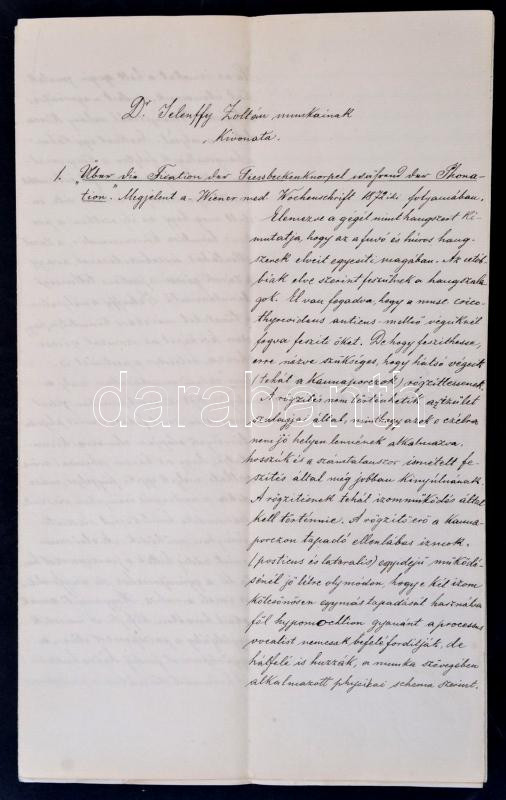 Dr Jelenffy Zoltán munkáinak
Kivonata.
1. "Über die Fixation der Giessbeckenknorpel während der Phona-
tion." Megjelent a Wiener med. Wochenschrift 1872iki folyamában.
Elemezve a gégét mint hangszert ki-
mutatja, hogy az a fuvó és húros hang-
szerek elveit egyesíti magában. Az utób-
biak elve szerint feszülnek a hangszala-
gok. El van fogadva, hogy a musc. crico-
thyreoideus anticus mellső végüknél
fogva feszíti őket. De hogy feszíthesse,
erre nézve szükséges, hogy hátsó végeik
(tehát a Kannaporczok) rögzíttessenek.
A rögzítés nem történhetik az ízület
szalagjai által, minthogy azok e czélra
nem jó helyen lennének alkalmazva,
hosszúk is a számtalanszor ismételt fe-
szítés által még jobban kinyúlnának.
A rögzítésnek tehát izomműködés által
kell történnie. A rögzítő erő a kanna-
porczon tapadó ellenlábas izmok
(posticus és lateralis) egyidejű működé-
sénél jő létre oly módon, hogy e két izom
kölcsönösen egymás tapadását használva
föl hypomochlion gyanánt a processus
vocalist nemcsak befelé fordítják, de
hátfelé is huzzák, a munka szövegében
alkalmazott physikai schema szerint.
darabanth